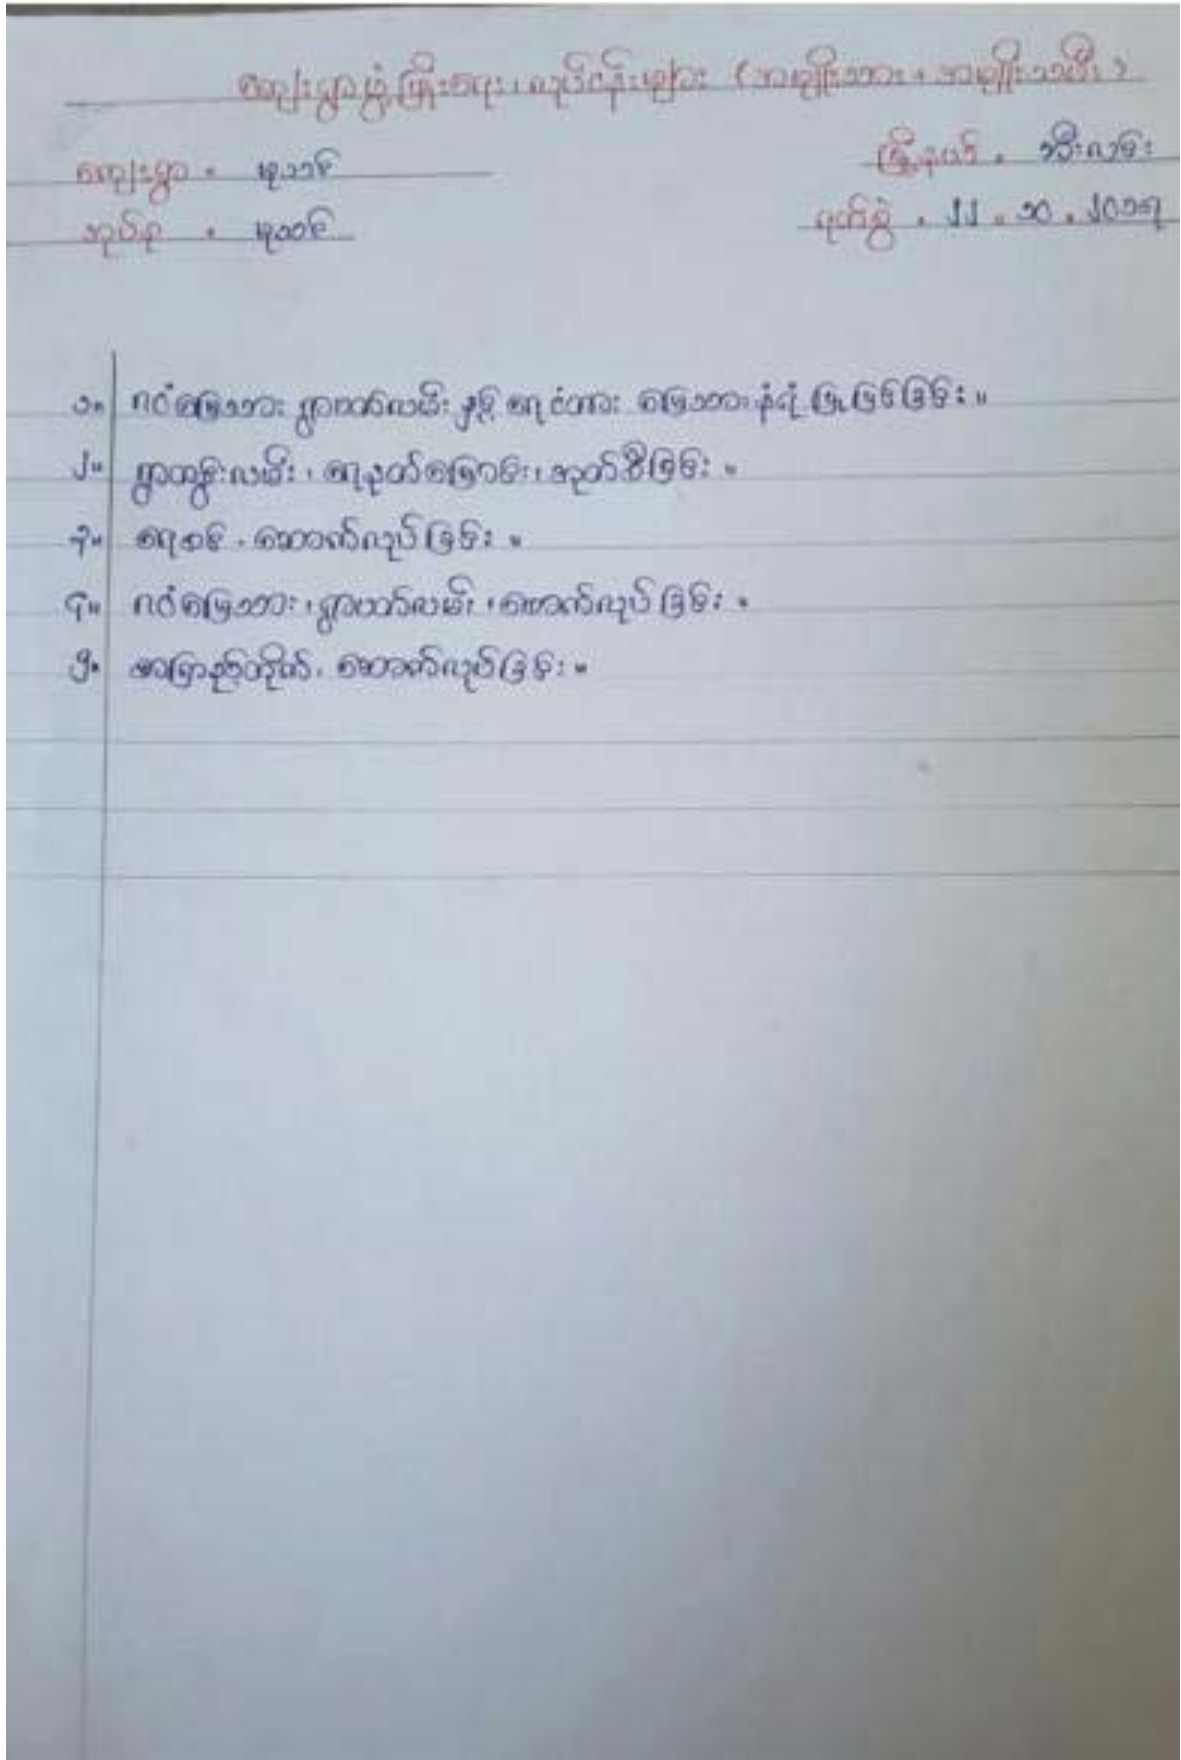 ကျေးရွာဖွံ့ဖြိုးရေး၊ လုပ်ငန်းများ (အမျိုးသား၊ အမျိုးသမီး)
ကျေးရွာ - မူသစ် မြို့နယ် - သီးလင်း
အုပ်စု - မူသစ် ရက်စွဲ - ၂၂ - ၁၀ - ၂၀၁၅
၁။ ဂဝံမြေသား ရွာပတ်လမ်း နှင့် ရေငံတား မြေသား နံရံ ပြုပြင်ခြင်း။
၂။ ရွာတွင်းလမ်း၊ ရေနုတ်မြောင်း၊ အုတ်စီခြင်း။
၃။ ရေစင်၊ ဆောက်လုပ်ခြင်း။
၄။ ဂဝံမြေသား၊ ရွာပတ်လမ်း၊ ဖောက်လုပ်ခြင်း။
၅။ စာကြည့်တိုက်၊ ဆောက်လုပ်ခြင်း။